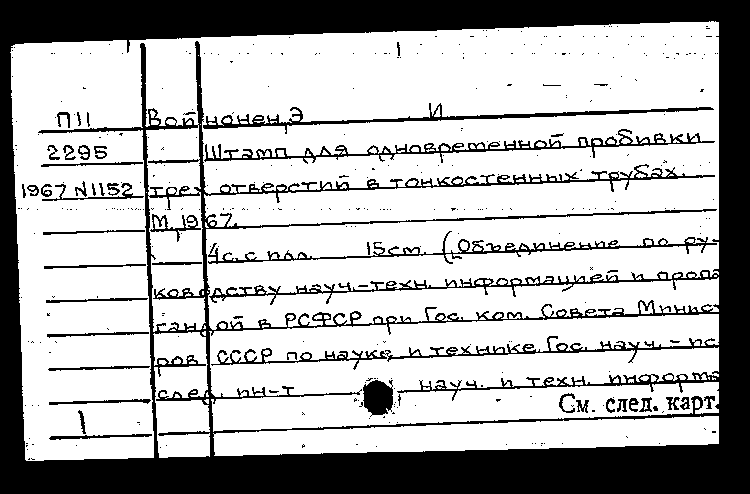 П11 Войнонен, Э И
2295 Штамп для одновременной пробивки
1967 N1152 трех отверстий в тонкостенных трубах.
М, 1967.
4с. с илл. 15см. (Объединение по ру-
ководству науч.-техн. информацией и пропа
гандой в РСФСР при Гос. ком. Совета Минист
ров СССР по науке и технике. Гос. науч.-ис
след. ин-т науч. и техн. информа
См. след. карт.
1